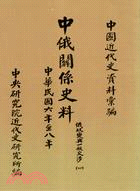 中國近代史資料彙編
中俄關係史料
俄政變與一般交涉(一)
中華民國六年至八年
中央研究院近代史研究所編